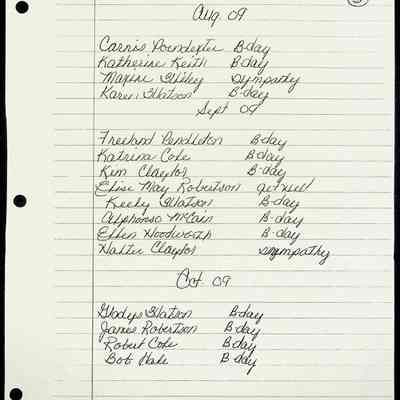 Aug. 09
Carrie Poindexter B-day
Katherine Keith B-day
Maxine Sympathy
Karen Watson B-day
Sept 09
Freeland Pendleton B-day
Katrina Cole B-day
Kim Claytor B-day
Elise May Robertson get well
Keely Watson B-day
Alphonso McCain B-day
Ellen Woodworth B-day
Walter Claytor sympathy
Oct. 09
Gladys Watson B-day
James Robertson B-day
Robert Cole B-day
Bob Hale B-day